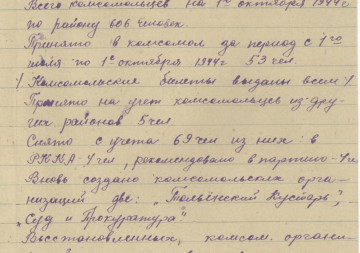 Всего комсомольцев на 1е октября 1944 г
по району 606 человек.
Принято в комсомол за период с 1го
июля по 1е октября 1944 г 53 чел.
/ Комсомольские билеты выданы всем /
Принято на учет комсомольцев из дру-
гих районов 5 чел
Снято с учета 69 чел из них: в
Р.К.К.А - 1 чел, рекомендовано в партию - 1 че
Вновь создано комсомольских орга-
низаций две: „ Кустарь",
„Суд и Прокуратура"
Восстановленных, комсом. органи-